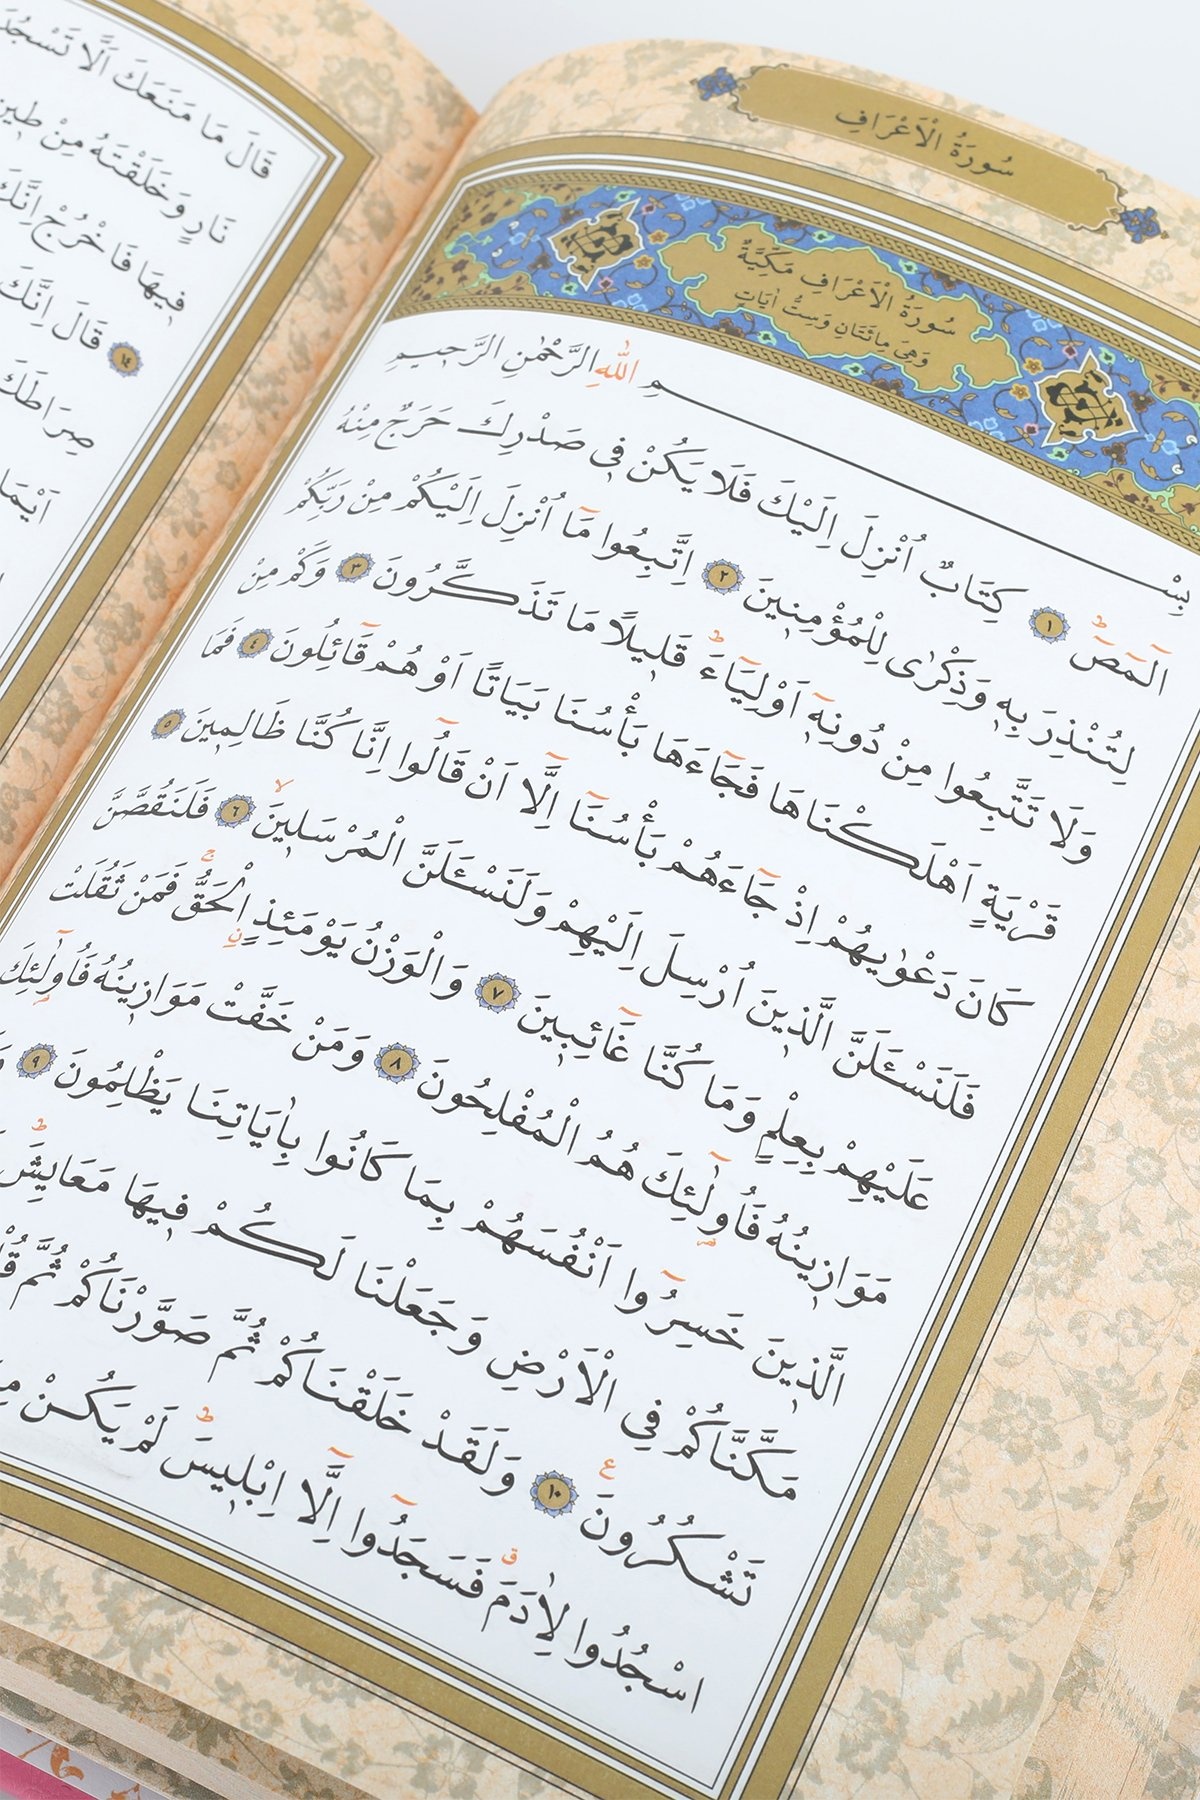 سُورَةُ الْاَعْرَافِ
سُورَةُ الْاَعْرَافِ مَكِّيَّةٌ
وَهِىَ مِائَتَانِ وَسِتُّ اٰيَاتٍ
بِسْمِ اللّٰهِ الرَّحْمٰنِ الرَّحِيمِ
الٓمٓصٓ ﴿١﴾ كِتَابٌ اُنْزِلَ اِلَيْكَ فَلَا يَكُنْ فِى صَدْرِكَ حَرَجٌ مِنْهُ
لِتُنْذِرَ بِهِ وَذِكْرٰى لِلْمُؤْمِنِينَ ﴿٢﴾ اِتَّبِعُوا مَٓا اُنْزِلَ اِلَيْكُمْ مِنْ رَبِّكُمْ
وَلَا تَتَّبِعُوا مِنْ دُونِهِٓ اَوْلِيَٓاءَ قَلِيلًا مَا تَذَكَّرُونَ ﴿٣﴾ وَكَمْ مِنْ
قَرْيَةٍ اَهْلَكْنَاهَا فَجَٓاءَهَا بَأْسُنَا بَيَاتًا اَوْ هُمْ قَٓائِلُونَ ﴿٤﴾ فَمَا
كَانَ دَعْوٰيهُمْ اِذْ جَٓاءَهُمْ بَأْسُنَٓا اِلَّٓا اَنْ قَالُٓوا اِنَّا كُنَّا ظَالِمِينَ ﴿٥﴾
فَلَنَسْـَٔلَنَّ الَّذِينَ اُرْسِلَ اِلَيْهِمْ وَلَنَسْـَٔلَنَّ الْمُرْسَلِينَ ﴿٦﴾ فَلَنَقُصَّنَّ
عَلَيْهِمْ بِعِلْمٍ وَمَا كُنَّا غَٓائِبِينَ ﴿٧﴾ وَالْوَزْنُ يَوْمَئِذٍ الْحَقُّ فَمَنْ ثَقُلَتْ
مَوَازِينُهُ فَاُو۬لٰٓئِكَ هُمُ الْمُفْلِحُونَ ﴿٨﴾ وَمَنْ خَفَّتْ مَوَازِينُهُ فَاُو۬لٰٓئِكَ
الَّذِينَ خَسِرُٓوا اَنْفُسَهُمْ بِمَا كَانُوا بِاٰيَاتِنَا يَظْلِمُونَ ﴿٩﴾
مَكَّنَّاكُمْ فِى الْاَرْضِ وَجَعَلْنَا لَكُمْ فِيهَا مَعَايِشَ
تَشْكُرُونَ ﴿١٠﴾ وَلَقَدْ خَلَقْنَاكُمْ ثُمَّ صَوَّرْنَاكُمْ ثُمَّ
اسْجُدُوا لِاٰدَمَ فَسَجَدُٓوا اِلَّٓا اِبْلِيسَ لَمْ يَكُنْ
قَالَ مَا مَنَعَكَ اَلَّا تَسْجُدَ
نَارٍ وَخَلَقْتَهُ مِنْ طِينٍ
فِيهَا فَاخْرُجْ اِنَّكَ
قَالَ اِنَّكَ ﴿١٤﴾
صِرَاطَكَ
اَيْمَا